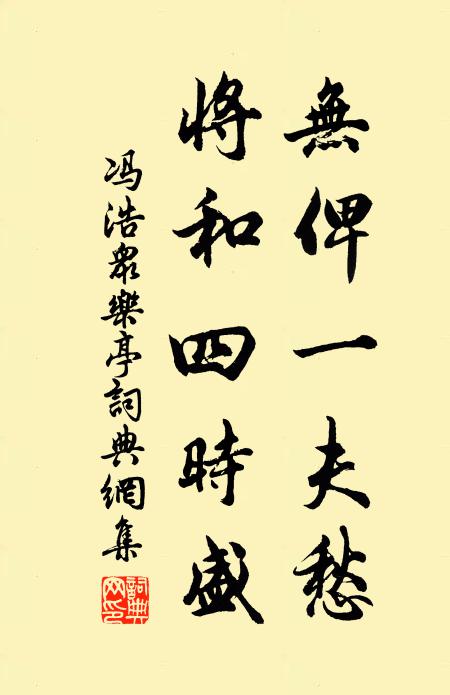 無俾一夫愁
将和四時盛
冯浩眾樂亭詞典網集
詞典网印